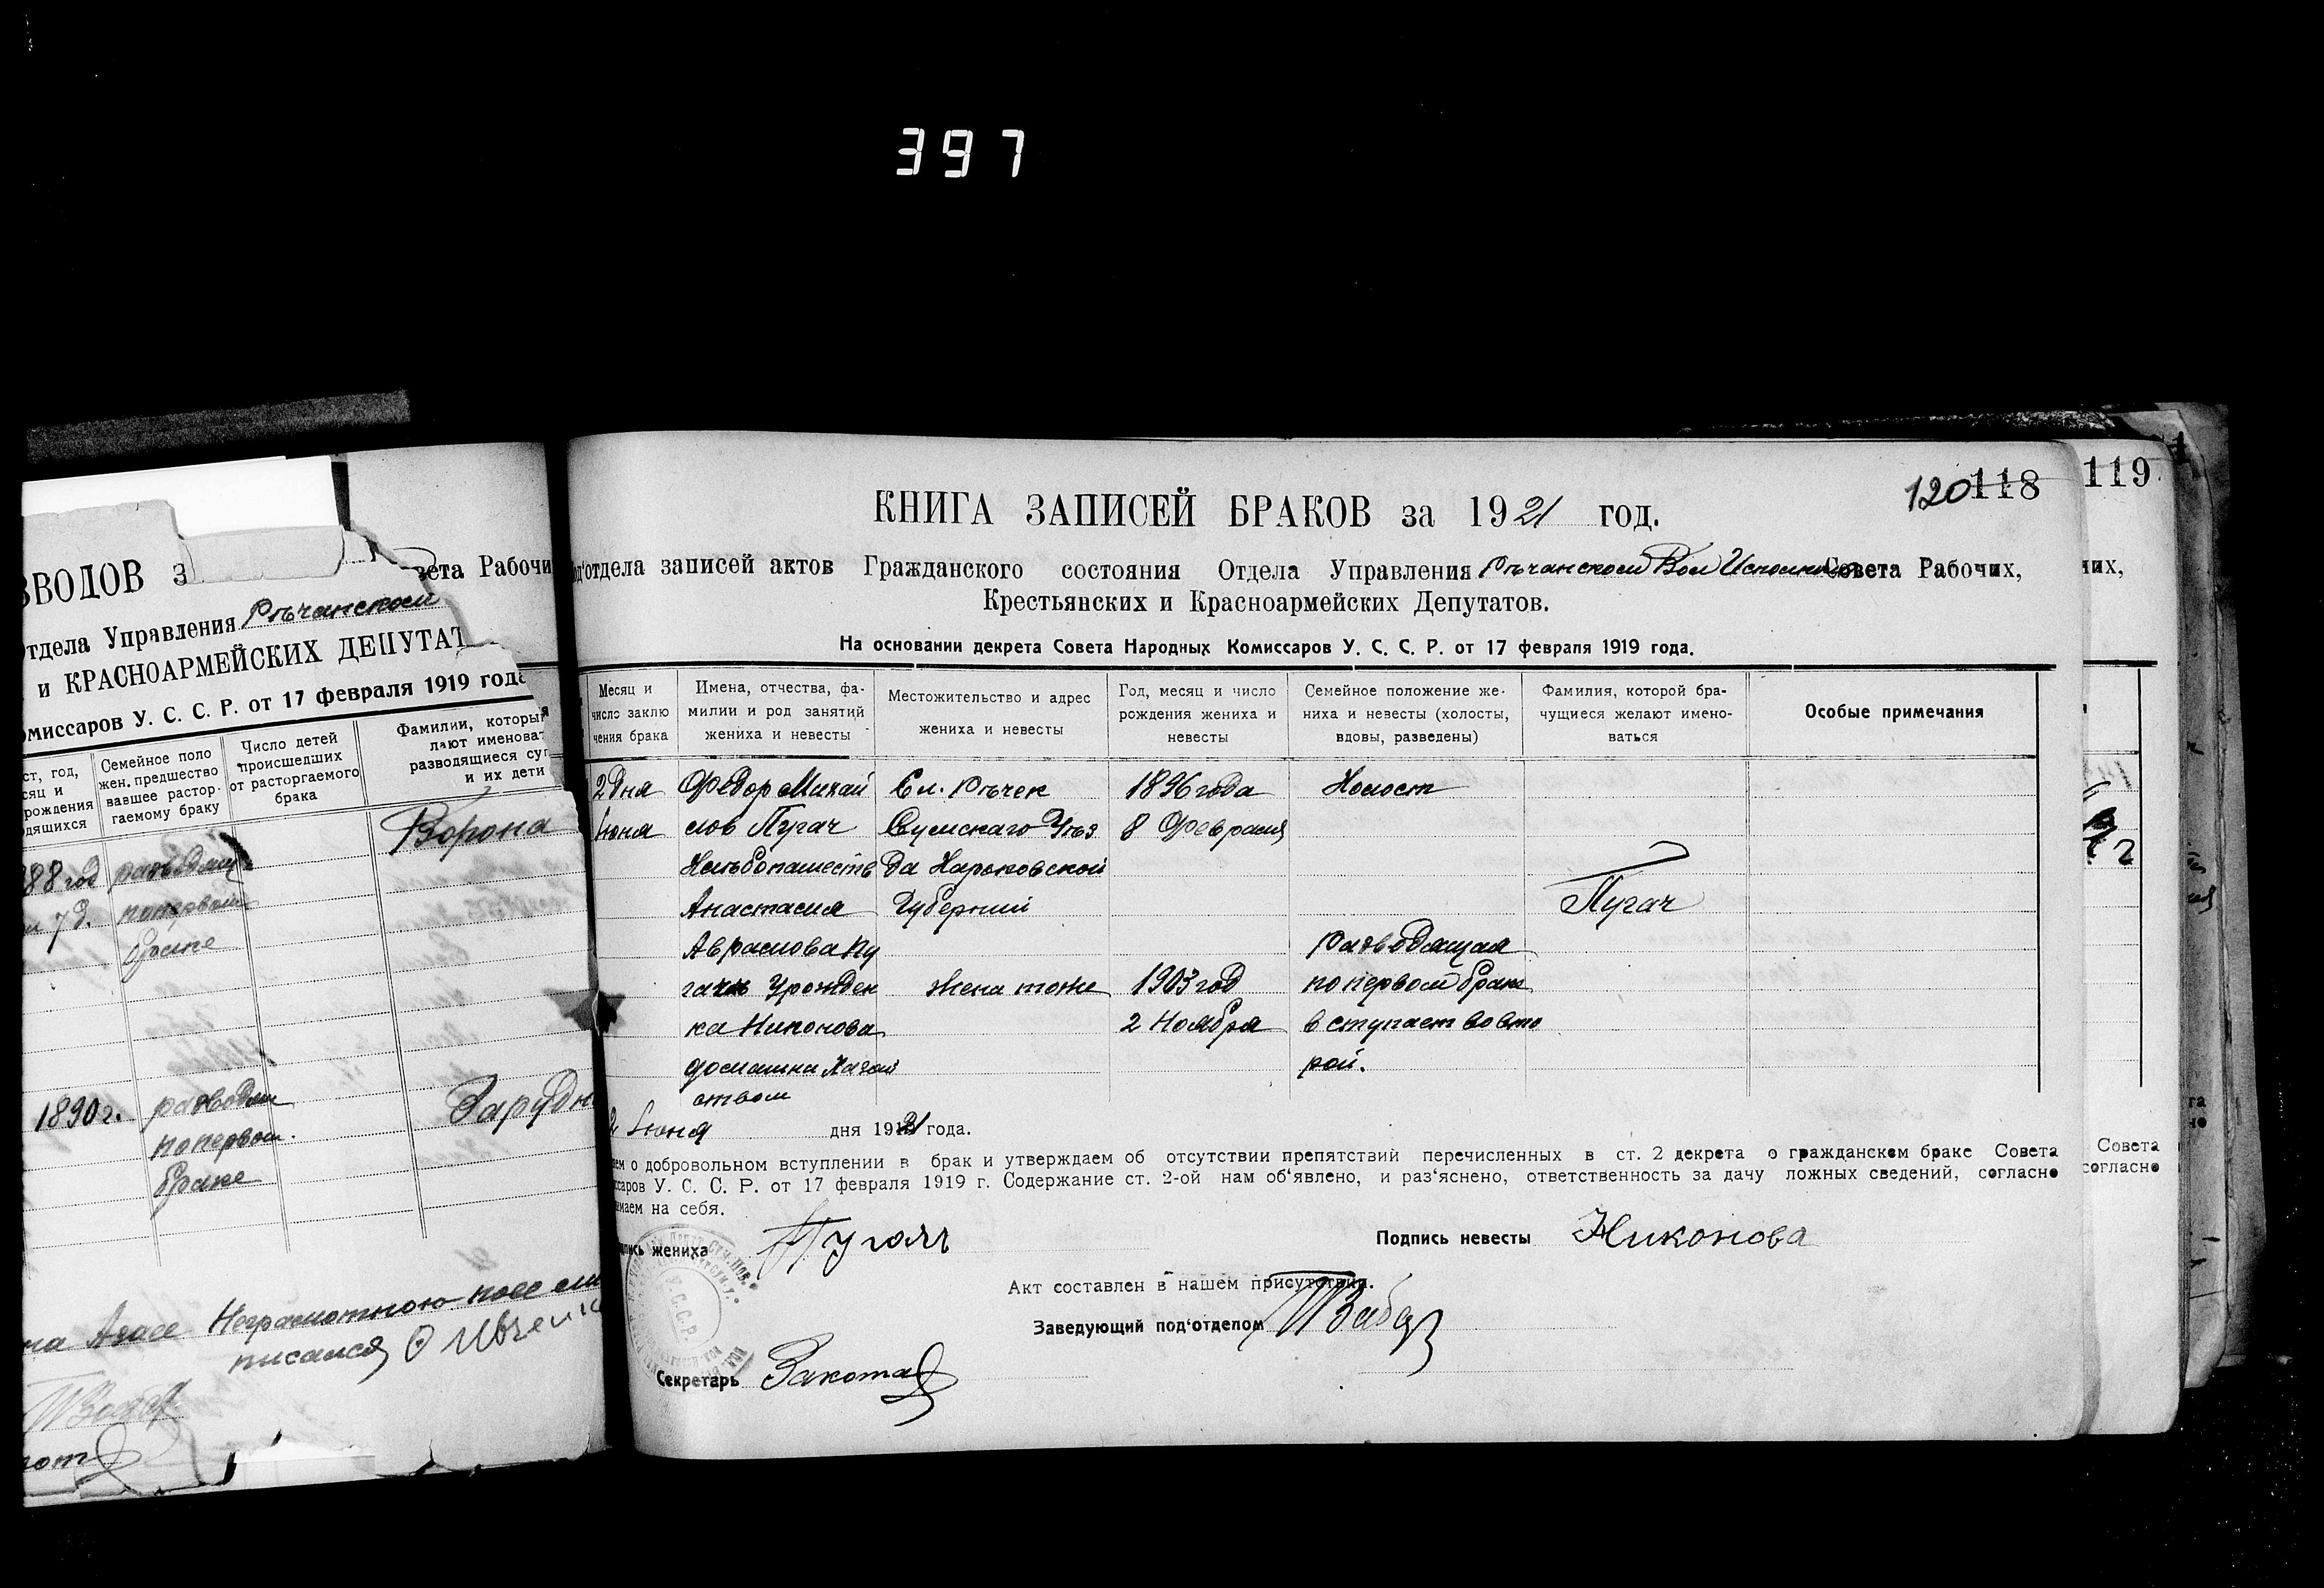 397
ЗВОДОВ з
вета Рабочи
отдела Управления Рѣчанском
и КРАСНОАРМЕЙСКИХ ДЕПУТАТ
омиссаров У. С. С. Р. от 17 февраля 1919 года
ст, год,
сяц и
рождения
дящихся
Семейное поло
жен. предшество
вавшее растор-
гаемому браку
Число детей
происшедших
от расторгаемого
брака
Фамилии, которы
лают именоват
разводящиеся суп
и их дети
Ворона
88 год
7 д.
по первом
браке
1890 г.
по первом
браке
Неграмотною
119
них,
Совета
согласно
120 118
КНИГА ЗАПИСЕЙ БРАКОВ за 1921 год.
од'отдела записей актов Гражданского состояния Отдела Управления Рѣчанском Вол Исполком Совета Рабочих,
Крестьянских и Красноармейских Депутатов.
На основании декрета Совета Народных Комиссаров У. С. С. Р. от 17 февраля 1919 года.
Месяц и
число заклю
чения брака
Имена, отчества, фа-
милии и род занятий
жениха и невесты
Местожительство и адрес
жениха и невесты
Год, месяц и число
рождения жениха и
невесты
Семейное положение же-
ниха и невесты (холосты,
вдовы, разведены)
Фамилия, которой бра-
чущиеся желают имено-
ваться
Особые примечания
2 дня
Июня
Федор Михай
лов Пугач
Хлѣбопашеств
Анастасия
Аврамова Пу
гач Урожден
ка Никонова
домашн Хазяй
ством
Сл. Рѣчек
Сумскаго Уѣз
да Харьковской
Губернии
жена тоже
1896 года
8 Февраля
1903 год
2 Ноября
Холост
Разводящая
по первом брак
вступает во вто
рой.
Пугач
2 Июня дня 1921 года.
аем о добровольном вступлении в брак и утверждаем об отсутствии препятствий перечисленных в ст. 2 декрета о гражданском браке Совета
ссаров У. С. С. Р. от 17 февраля 1919 г. Содержание ст. 2-ой нам об'явлено, и раз'яснено, ответственность за дачу ложных сведений, согласно
имаем на себя.
пись жениха Пугач
Подпись невесты Никонова
Акт составлен в нашем присутствии.
Заведующий под'отделом
Секретарь
У.С.С.Р.